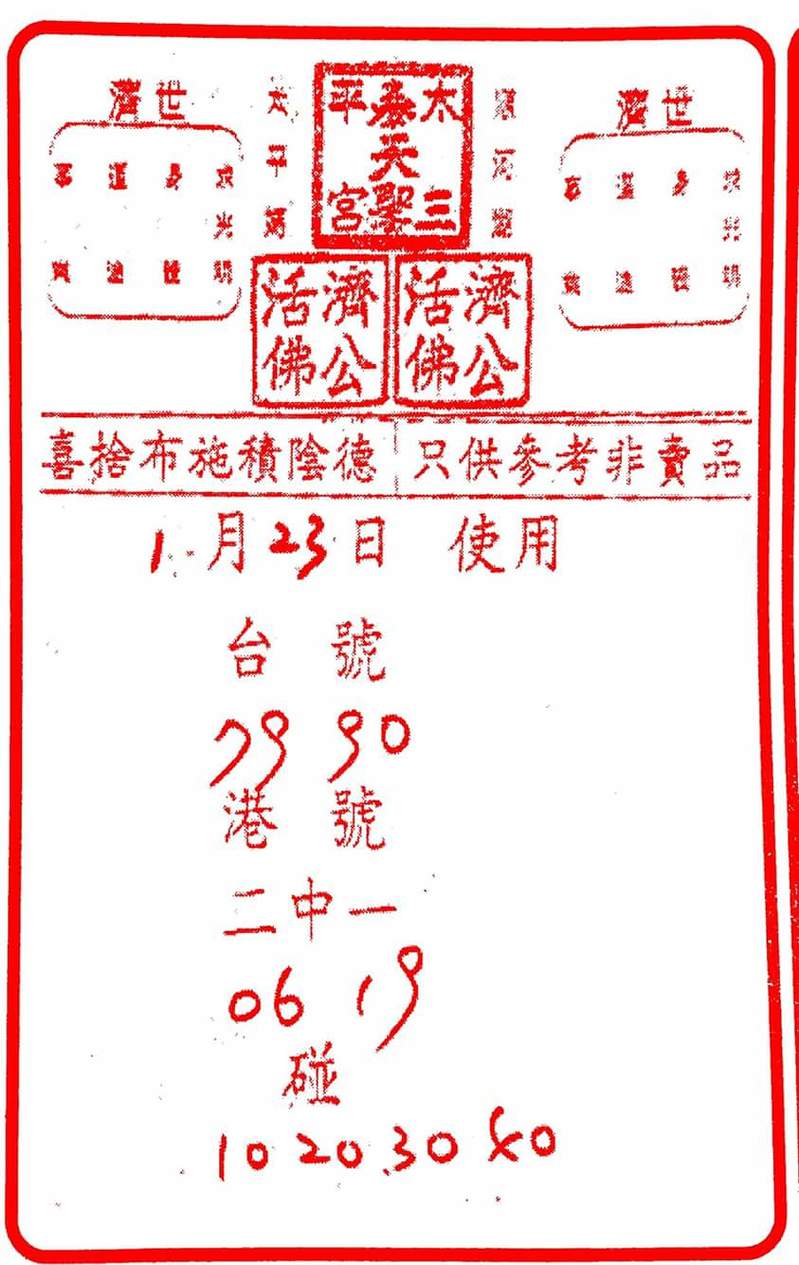 濟世
太平
泰天
三聖宮
濟世
濟公活佛
濟公活佛
喜捨布施積陰德 只供參考非賣品
1月23日 使用
台號
79 90
港號
二中一
06 19
碰
10 20 30 40